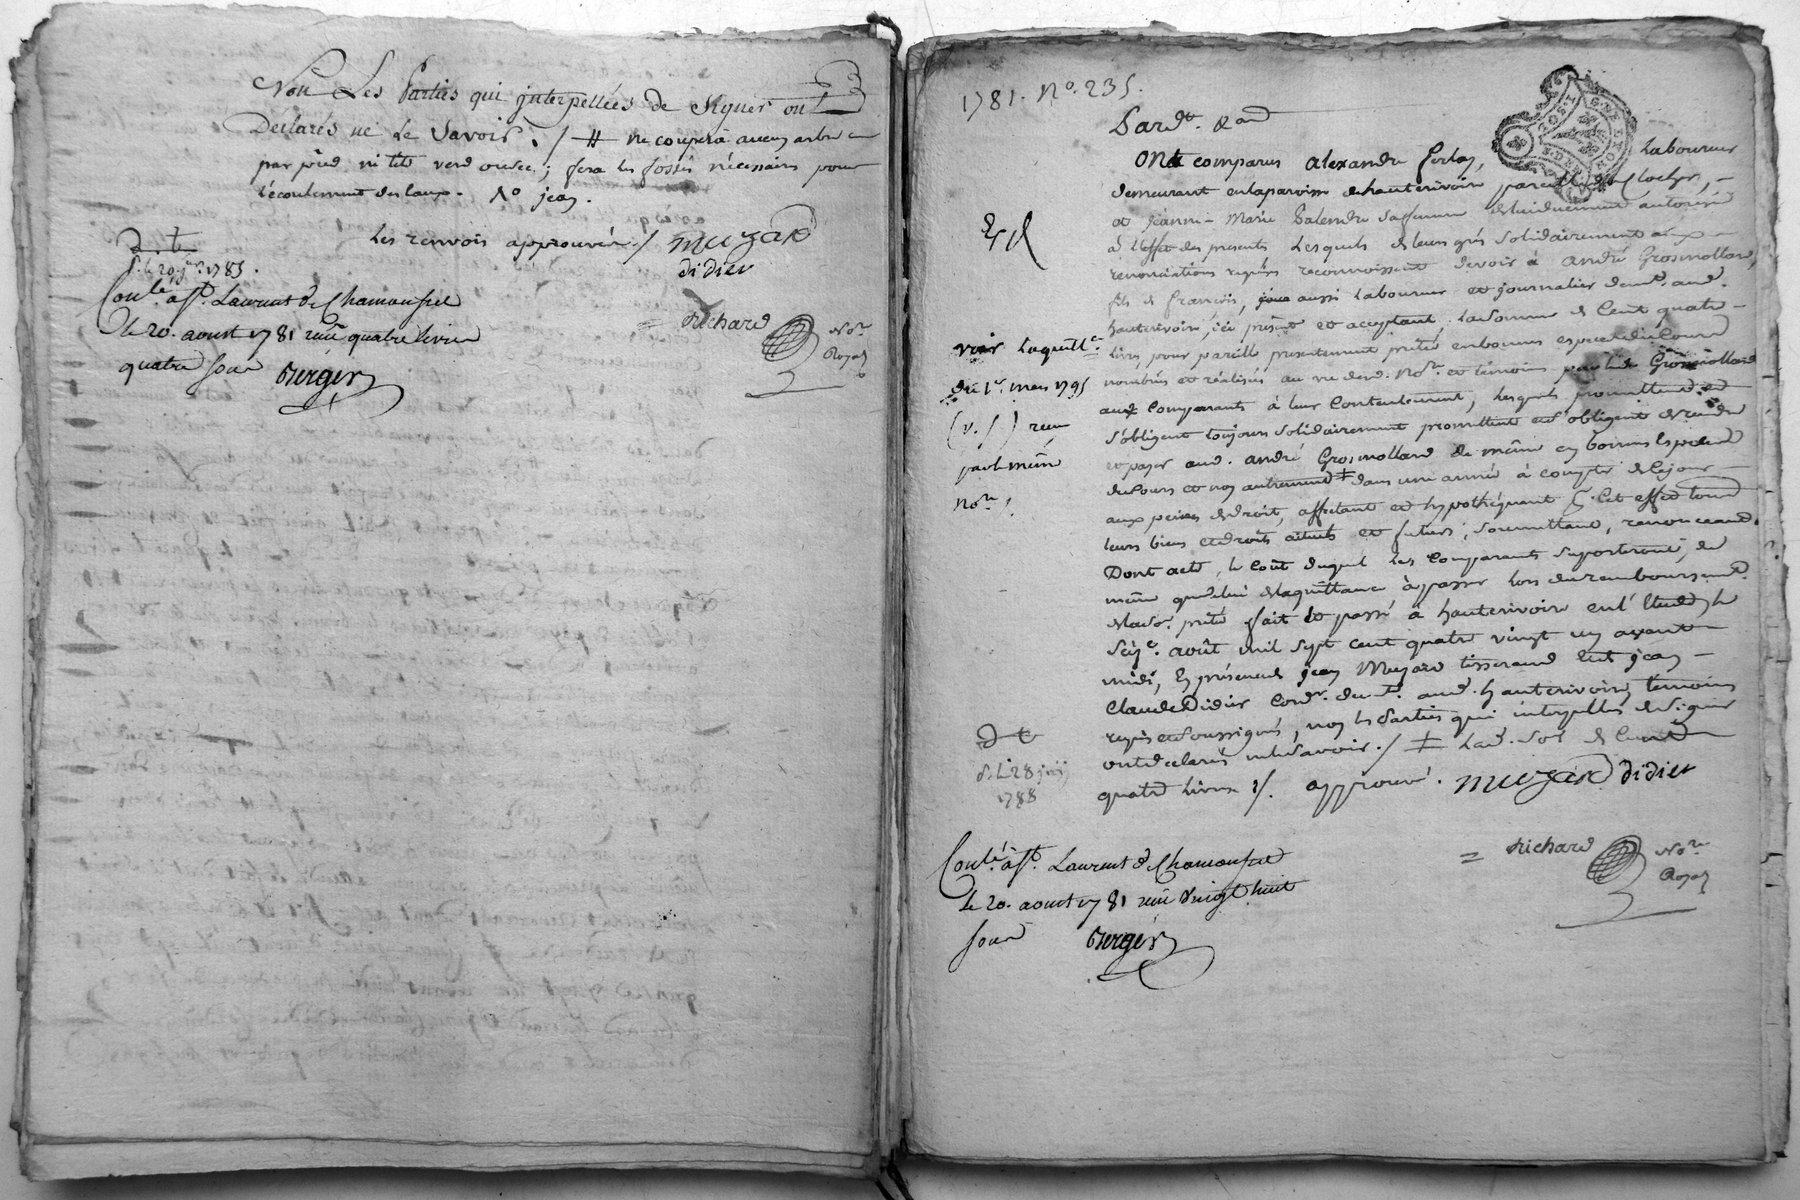 Non Les Parties qui interpellées de signer ont
Declarés ne Le Savoir ./ # ne coupera aucun arbre
par pied ni tête verd ou sec; fera les fossés nécessaires pour
l'écoulement des eaux. No jean.
Les renvois approuvés ./ muzard
didier
d. t.
1783.
Conlé à St. Laurent de Chamousset
le 20. aoust 1781 reçu quatre livres
quatre sous Berger
= Richard Nore
Royal
1781. No. 235.
Pardt. &ad
Ont comparus alexandre ferlay, Laboureur
demeurant en la paroisse de hauterivoire parcelle de Cloclyr,
et jeanne Marie sa femme de lui duement autorisée
à l'effet des presents Lesquels de leurs grés solidairement aux
renonciations requises reconnoissent devoir à andré Grosmolland,
fils de françois, aussi Laboureur et journalier demt. aud.
hauterivoire, ici présent et acceptant, la somme de Cent quatre
livres, pour pareille presentement prêtée en bonnes especes du Cours
nombrés et réalisés au vu desd. Nore et témoins par led Grosmolland
aux Comparants à leur Contentement, Lesquels promettent et
s'obligent toujours solidairement promettent et s'obligent de rendre
et payer aud. andré Grosmolland de même en bonnes Especes
du Cours et non autrement ‡ dans une année à compter de ce jour
aux peines de droit, affectant et hypothéquant à Cet effet tous
leurs biens et droits actuels et futurs; soumettant, renonceant.
Dont acte, le Coût duquel les Comparants suporteront, de
même que celui de la quittance à passer lors du remboursemt.
de lad. prêté fait et passé à hauterivoire en l'Etude le
seize. août mil sept cent quatre vingt un avant
midi, En présence de jean Muzard tisserand et jean
Claude Didier Cordr. demt. aud. hauterivoire, temoins
requis et soussignés, non les Parties qui interpellés de signer
ont déclarés ne le savoir ./ ‡ Lad. some de Cent
quatre livres ./. approuvé. muzard didier
voir la quittce.
du 1er. mars 1795
(v. s.) reçu
par le même
Nore.
d t
28 juin
1788
Conlé à St. Laurent de Chamousset
le 20. aoust 1781 reçu Vingt huit
sous Berger
= Richard Nore
Royal